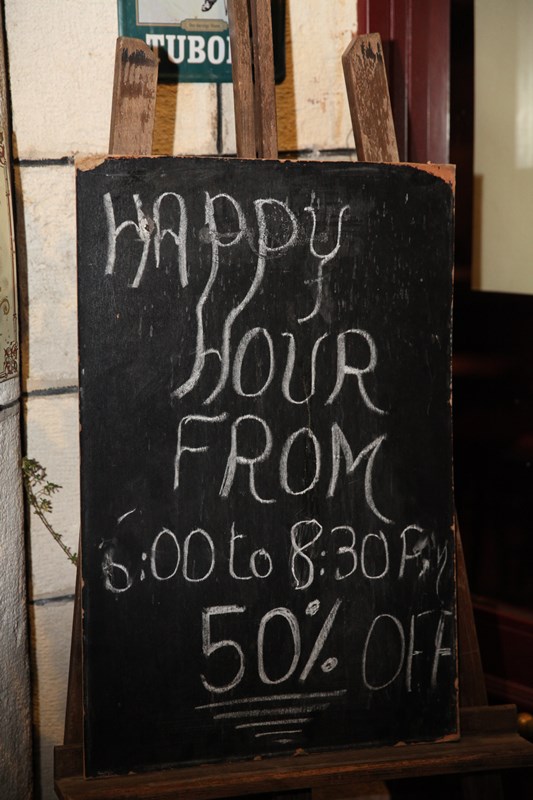 TUBOR
HAPPY
HOUR
FROM
6:00 to 8:30 Pm
50% OFF